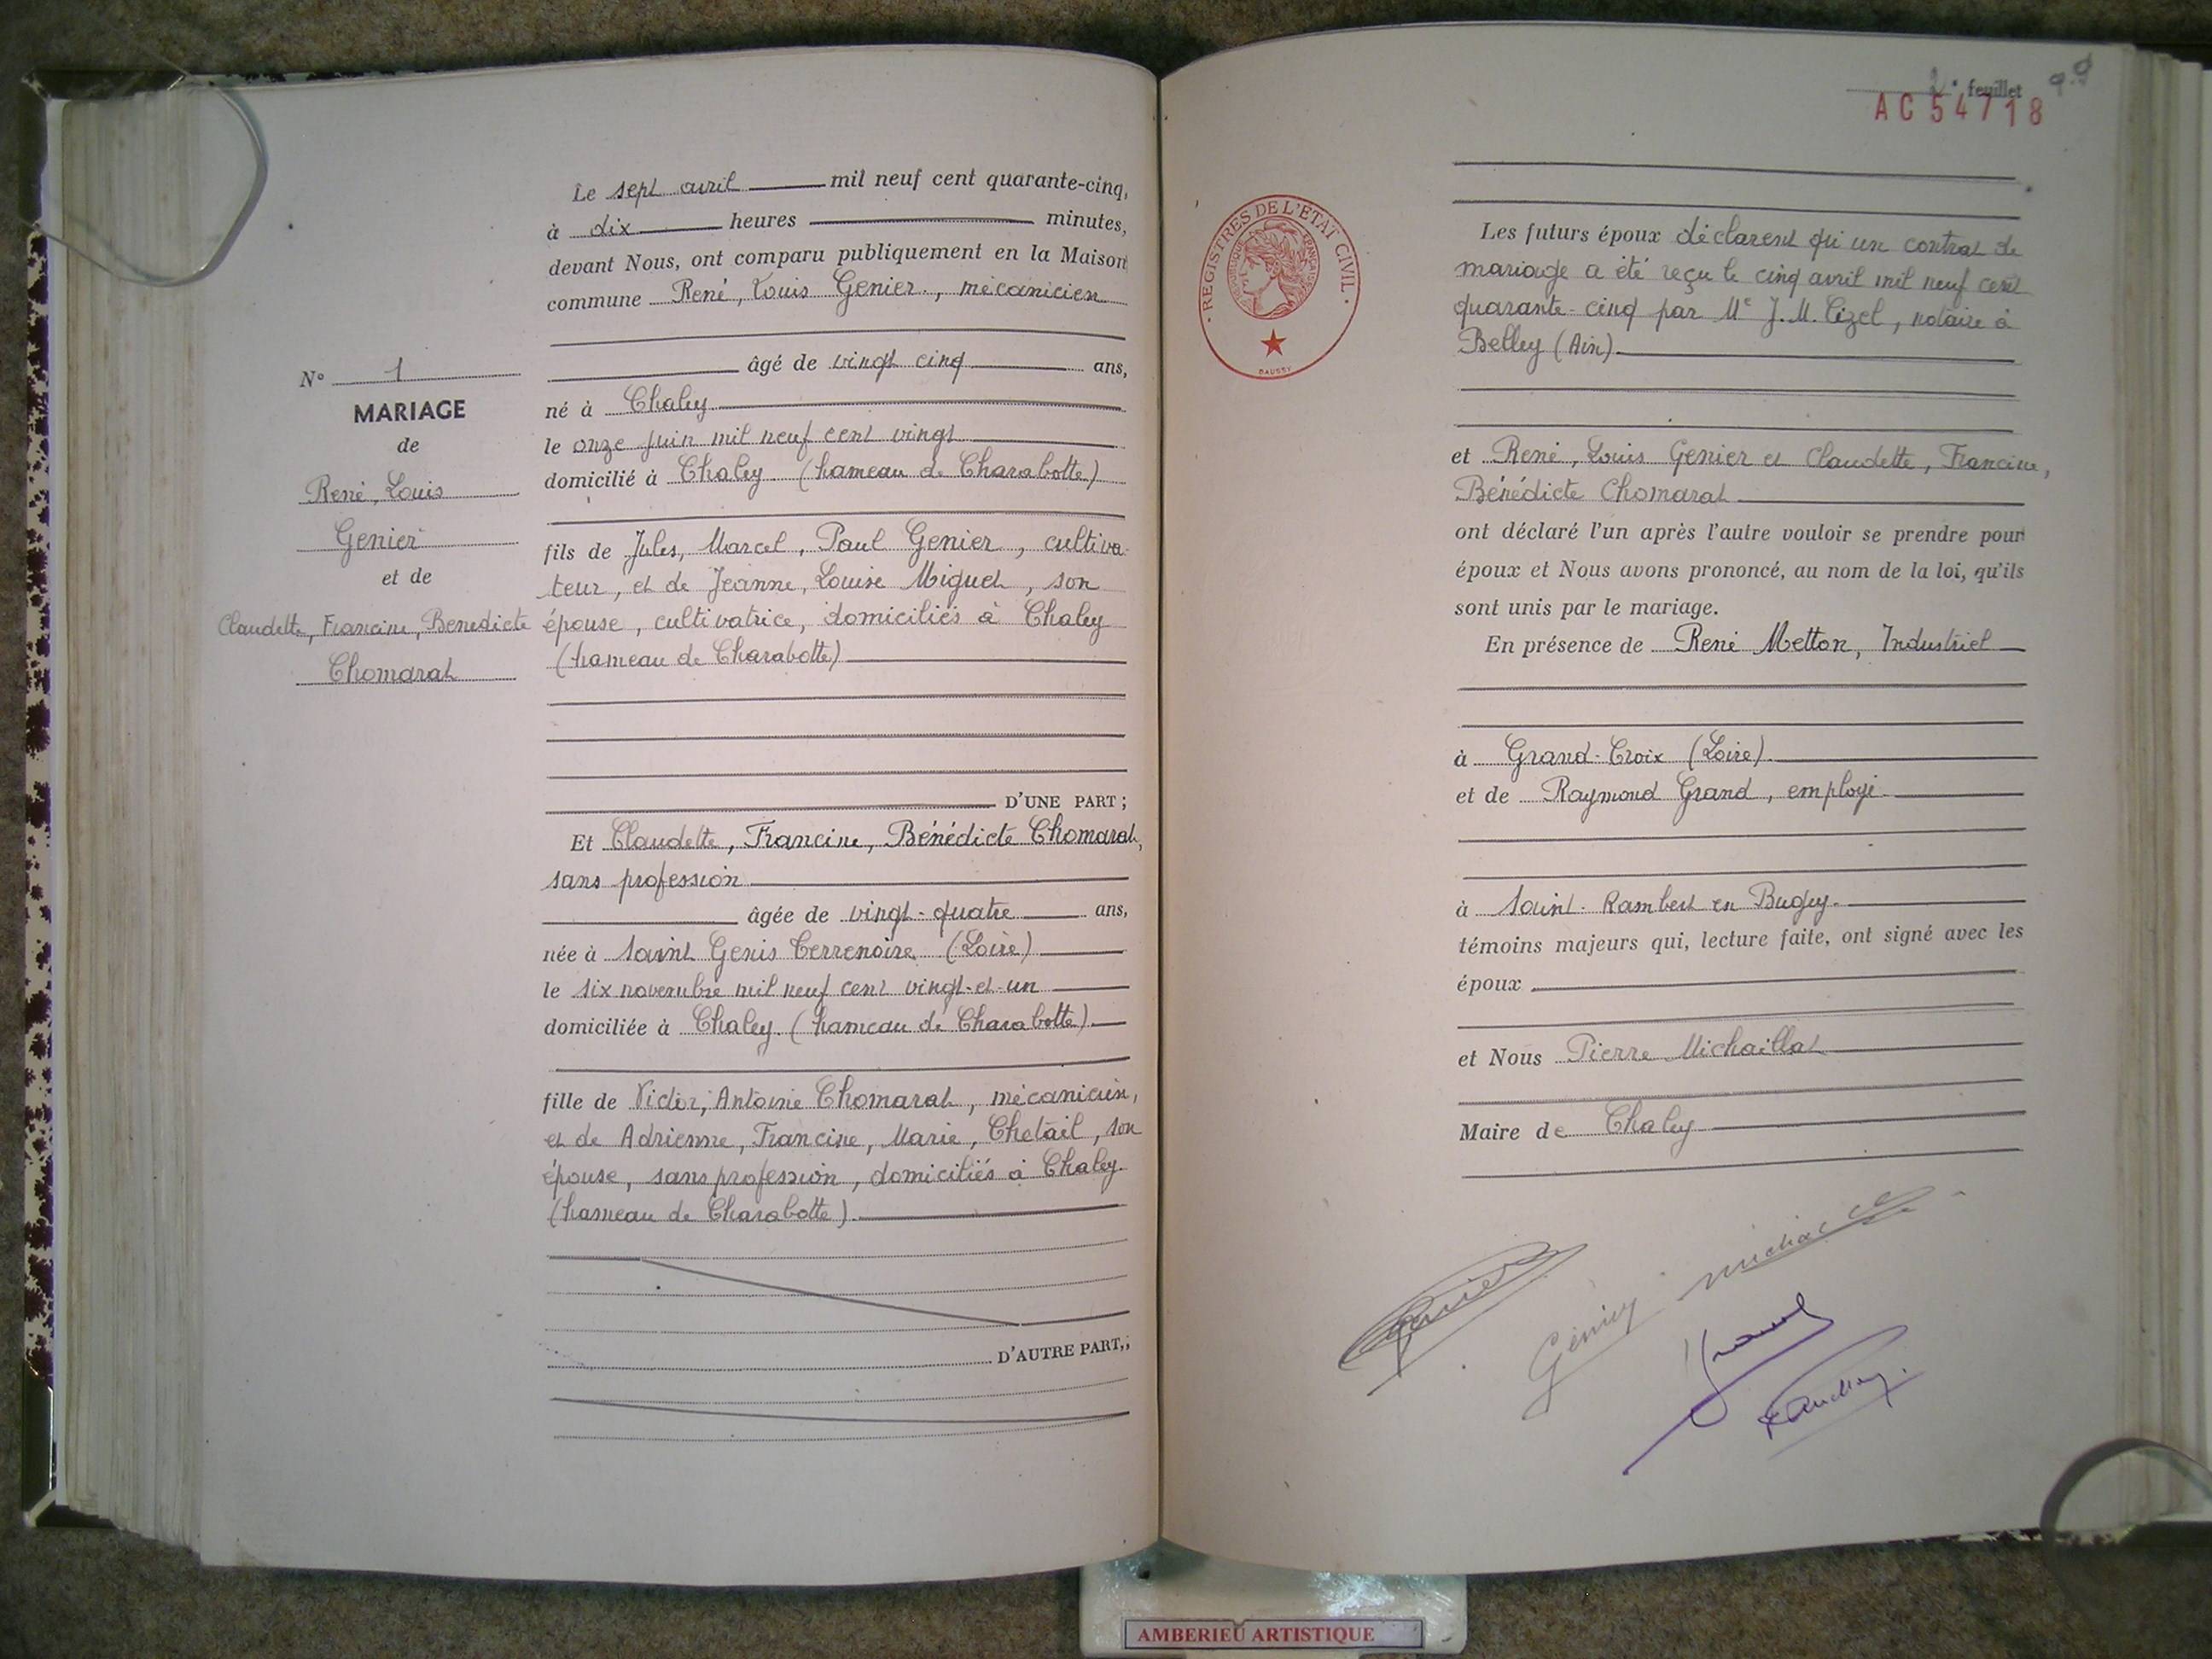 Le sept avril mil neuf cent quarante-cinq,
à dix heures minutes,
devant Nous, ont comparu publiquement en la Maison
commune René, Louis Genier, mécanicien
âgé de vingt cinq ans,
né à Chaley
le onze juin mil neuf cent vingt
domicilié à Chaley (hameau de Charabotte)
fils de Jules, Marcel, Paul Genier, cultiva-
teur, et de Jeanne, Louise Miguet, son
épouse, cultivatrice, domiciliés à Chaley
(hameau de Charabotte)
D'UNE PART ;
Et Claudette, Francine, Bénédicte Chomarat,
sans profession
âgée de vingt-quatre ans,
née à Saint Genis Terrenoire (Loire)
le six novembre mil neuf cent vingt-et-un
domiciliée à Chaley (hameau de Charabotte).
fille de Victor, Antoine Chomarat, mécanicien,
et de Adrienne, Francine, Marie, Chetail, son
épouse, sans profession, domiciliés à Chaley
(hameau de Charabotte).
D'AUTRE PART,
N° 1
MARIAGE
de
René, Louis
Genier
et de
Claudette, Francine, Benedicte
Chomarat
2e feuillet 99
AC 54718
REGISTRES DE L'ETAT CIVIL
REPUBLIQUE FRANÇAISE
DAUSSY
Les futurs époux déclarent qu'un contrat de
mariage a été reçu le cinq avril mil neuf cent
quarante-cinq par Me J.M. Cizel, notaire à
Belley (Ain).
et René, Louis Genier et Claudette, Francine,
Bénédicte Chomarat
ont déclaré l'un après l'autre vouloir se prendre pour
époux et Nous avons prononcé, au nom de la loi, qu'ils
sont unis par le mariage.
En présence de René Metton, Industriel
à Grand-Croix (Loire).
et de Raymond Grand, employé
à Saint-Rambert en Bugey.
témoins majeurs qui, lecture faite, ont signé avec les
époux
et Nous Pierre Michaillat
Maire de Chaley
Genier
AMBERIEU ARTISTIQUE